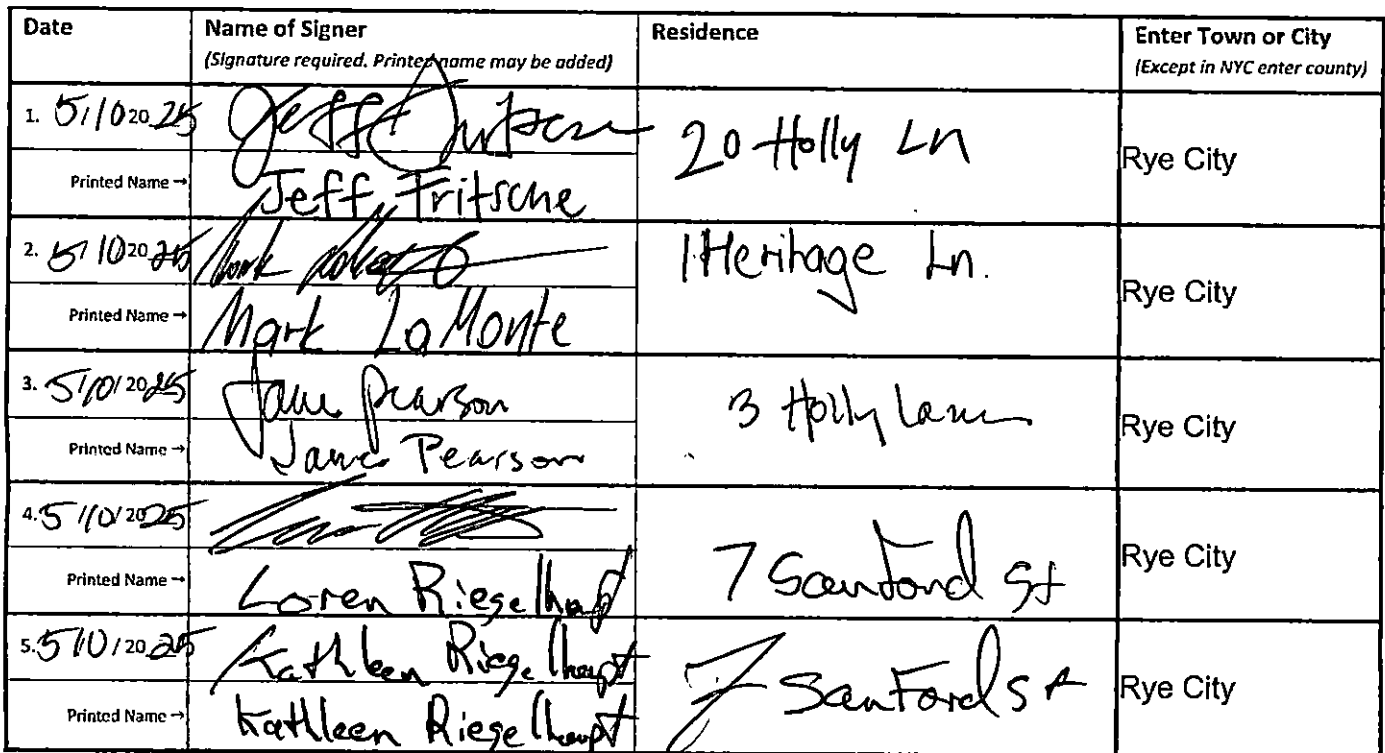 Date
Name of Signer
(Signature required. Printed name may be added)
Residence
Enter Town or City
(Except in NYC enter county)
1. 5/10 20 25
Jeff
20 Holly Ln
Rye City
Printed Name →
Jeff Fritsche
2. 5/10 20 25
Mark
1 Heritage Ln.
Rye City
Printed Name →
Mark LaMonte
3. 5/10/20 25
Jane Pearson
3 Holly Lane
Rye City
Printed Name →
Jane Pearson
4. 5/10/20 25
7 Sanford St
Rye City
Printed Name →
Loren Riegelhaupt
5. 5/10/20 25
Kathleen Riegelhaupt
7 Sanford St
Rye City
Printed Name →
Kathleen Riegelhaupt